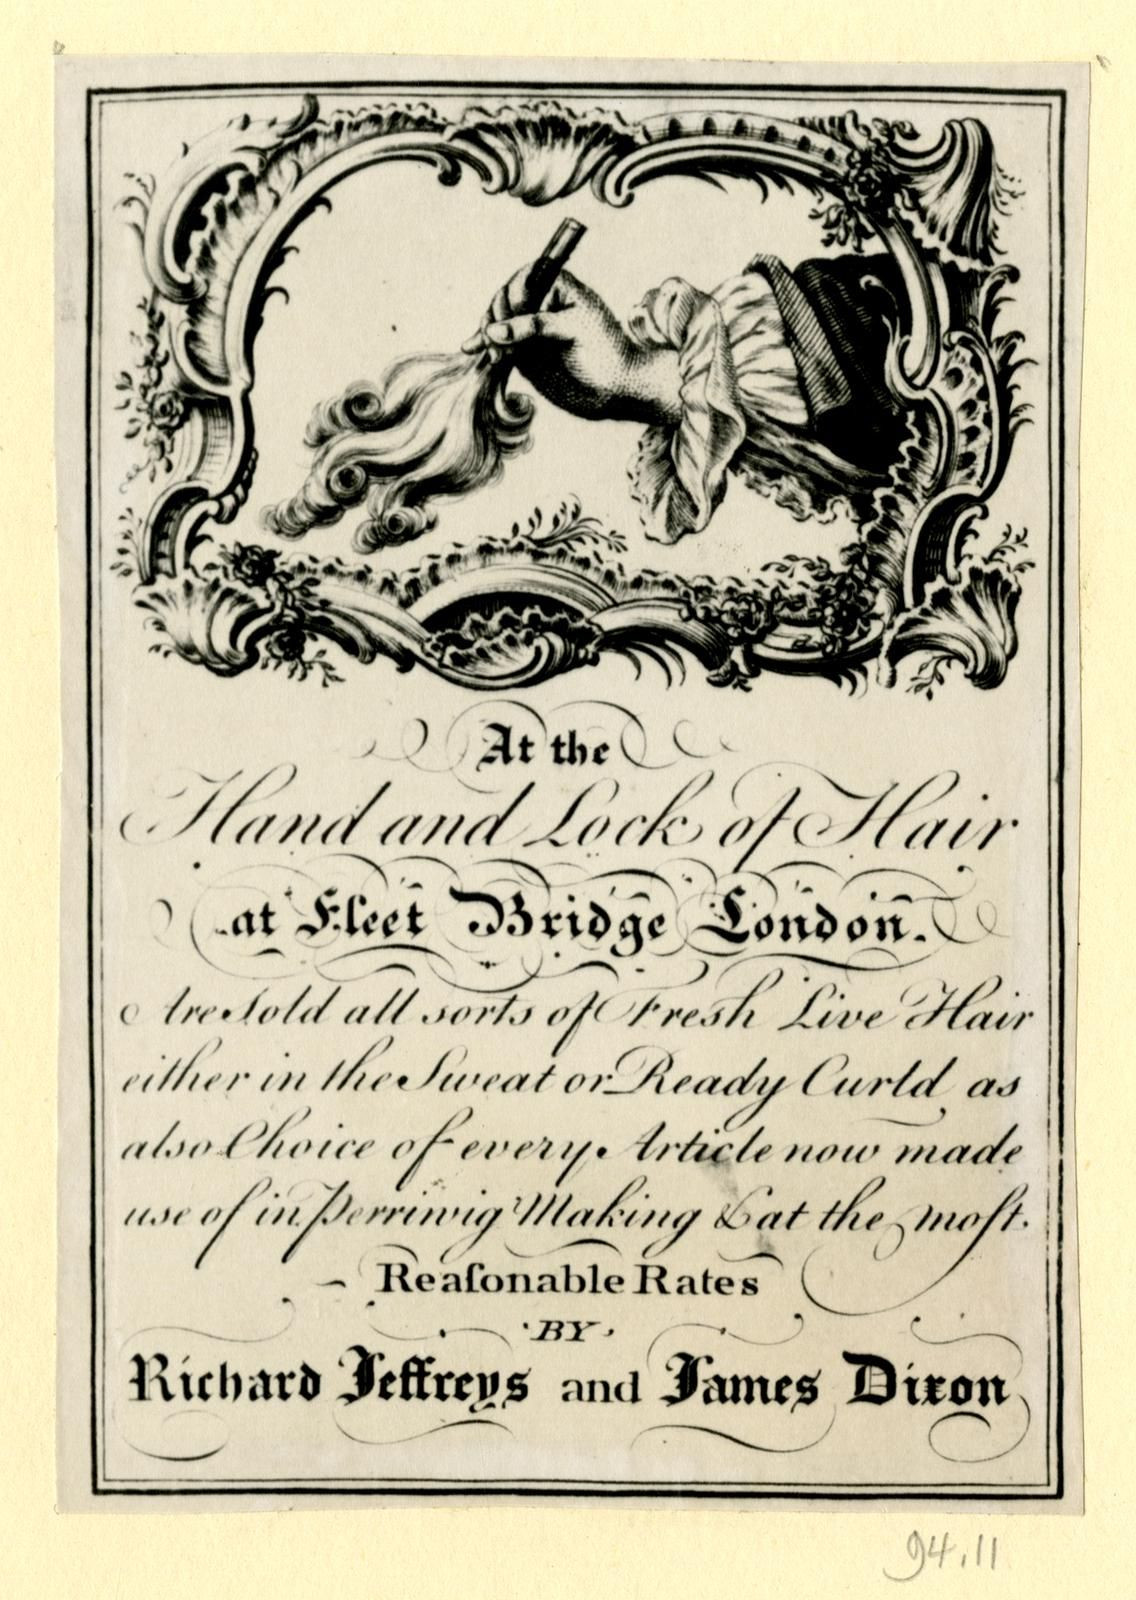 At the
Hand and Lock of Hair
at Fleet Bridge London.
Are Sold all sorts of Fresh Live Hair
either in the Sweat or Ready Curld as
also Choice of every Article now made
use of in Perriwig Making & at the moſt
Reaſonable Rates
BY
Richard Jeffreys and James Dixon
94.11